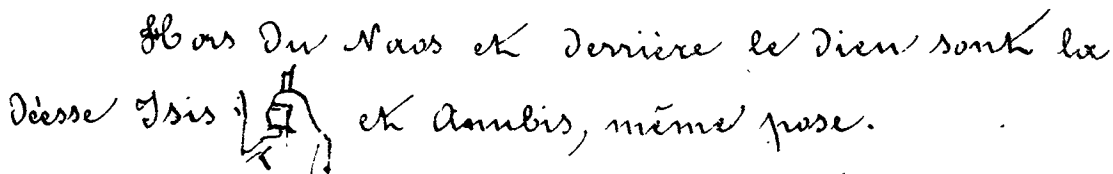 Hors du Naos et derrière le dieu sont la
déesse Isis et Anubis, même pose.